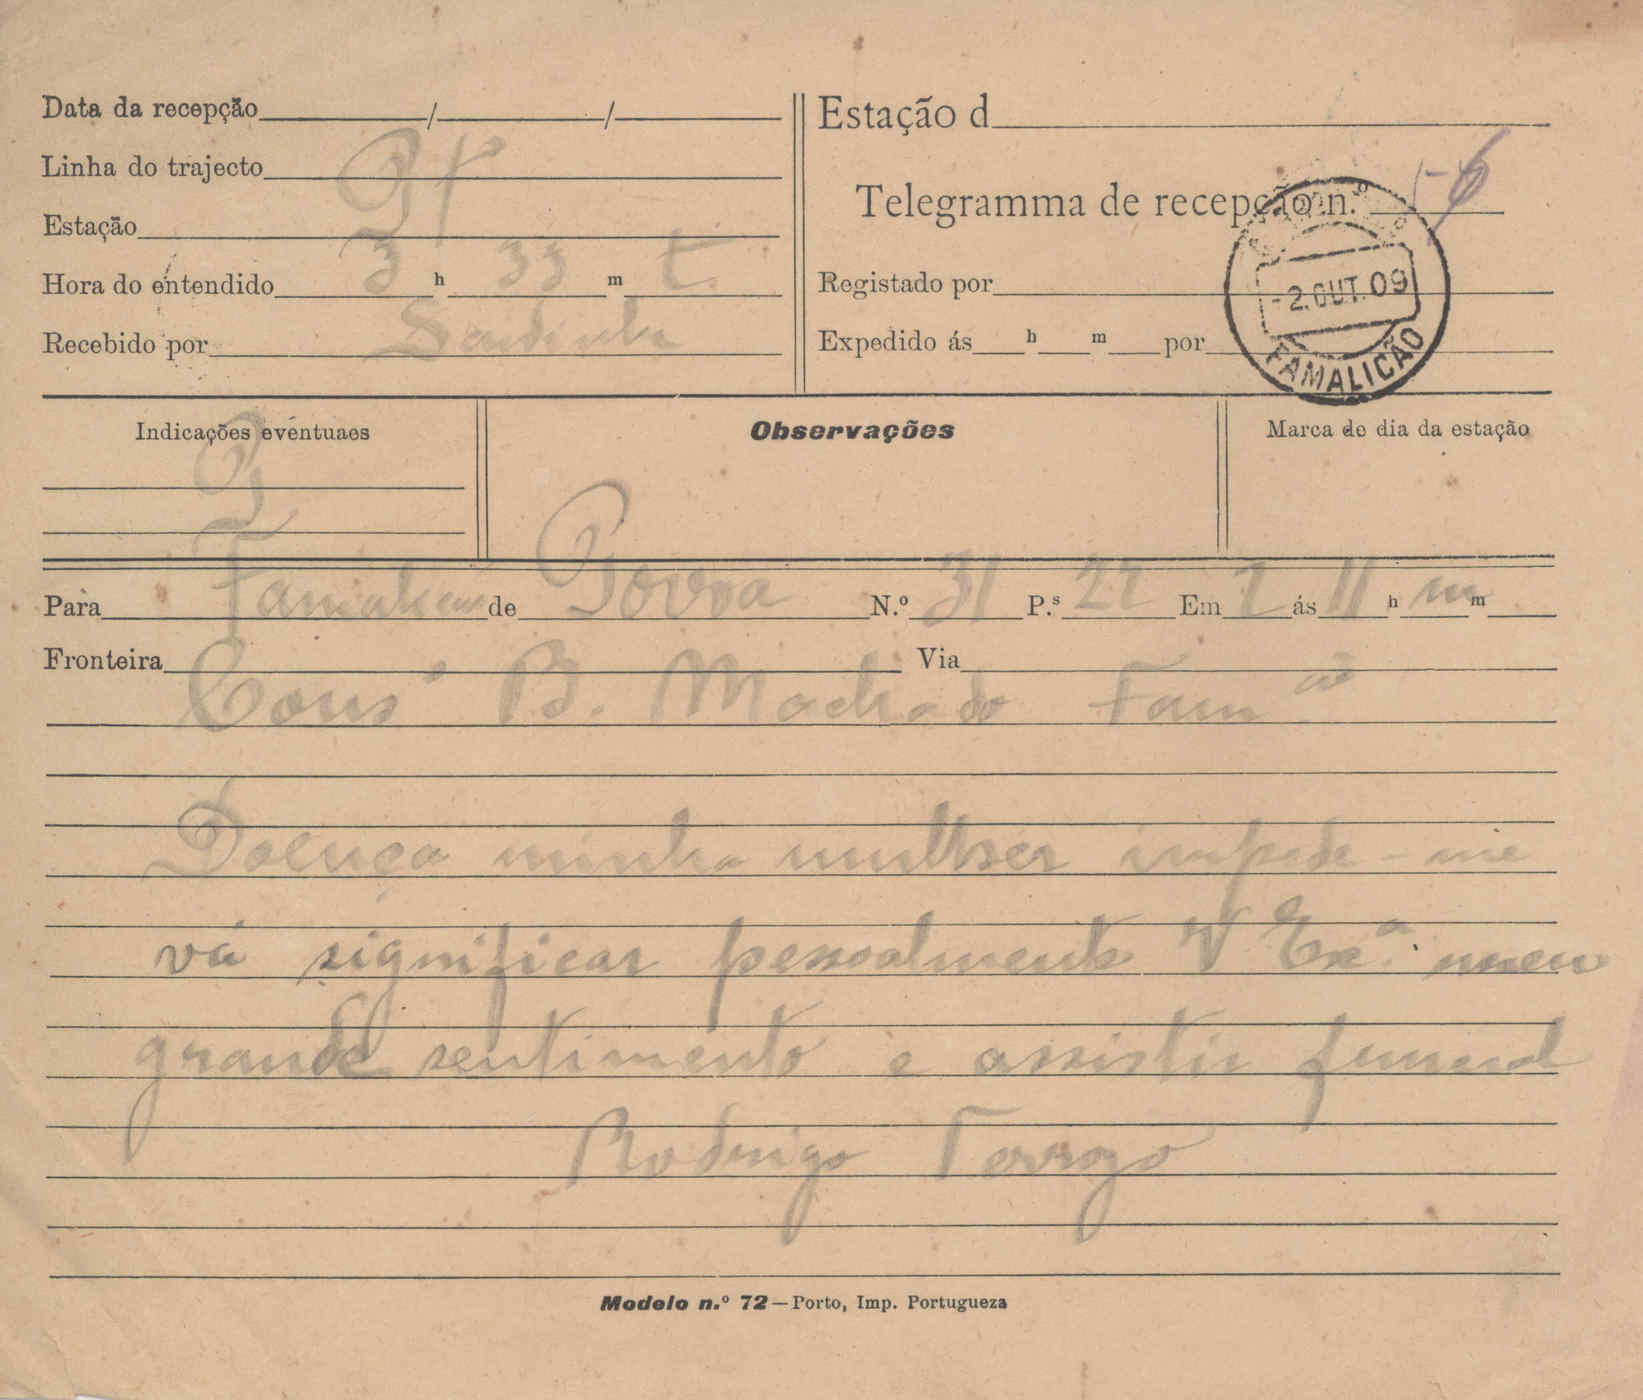 Data da recepção / /
Linha do trajecto
Estação
Hora do entendido 3 h 33 m t.
Recebido por
Estação d
Telegramma de recepção n.º
Registado por
Expedido ás h m por
-2.OUT.09
FAMALICÃO
Indicações eventuaes
Observações
Marca de dia da estação
Para Famalicão de Povoa N.º 31 P.s 21 Em 2 ás 11 h m m
Fronteira Via
Cons.º B. Machado Fam.ão
Doença minha mulher impede-me
vá significar pessoalmente V Ex.ª meu
grande sentimento e assistir funeral
Rodrigo Terroso
Modelo n.º 72—Porto, Imp. Portugueza